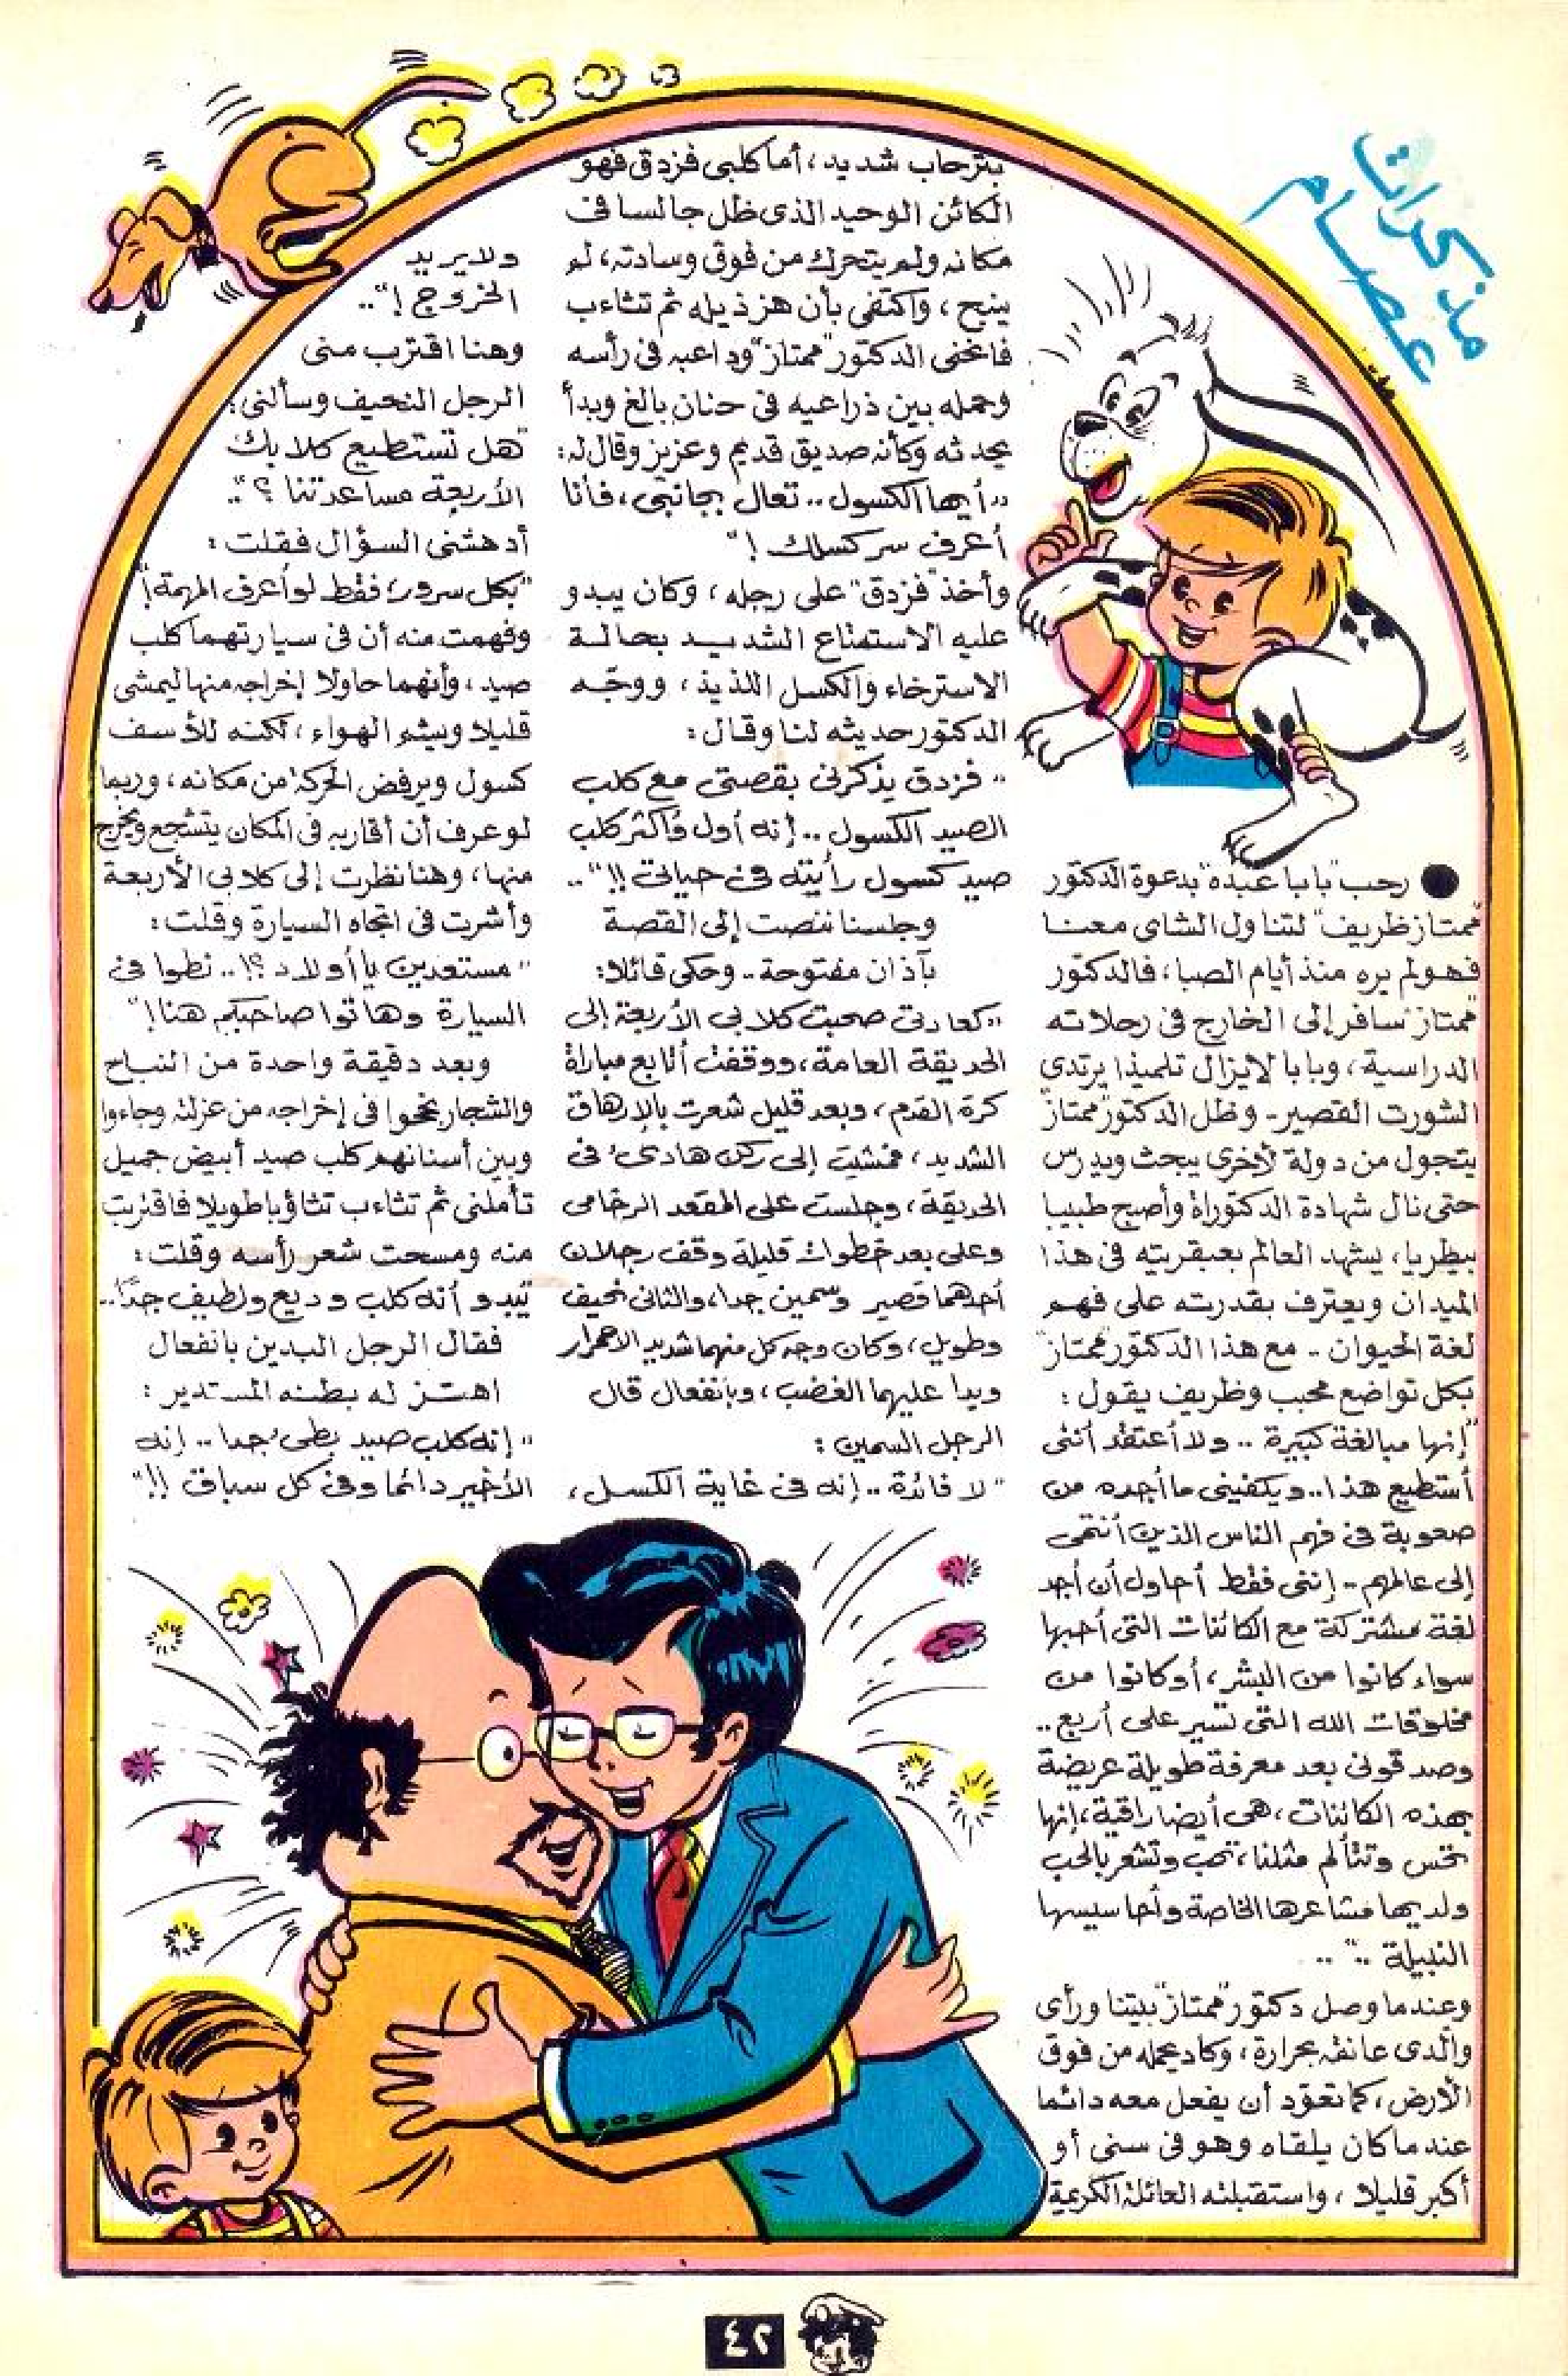 مذكرات
عصام
● رحب "بابا عبده" بدعوة الدكتور
"ممتاز ظريف" لتناول الشاى معنا
فهو لم يره منذ أيام الصبا، فالدكتور
"ممتاز" سافر إلى الخارج فى رحلاته
الدراسية، وبابا لايزال تلميذا يرتدى
الشورت القصير - وظل الدكتور "ممتاز"
يتجول من دولة لأخرى يبحث ويدرس
حتى نال شهادة الدكتوراة وأصبح طبيبا
بيطريا، يشهد العالم بعبقريته فى هذا
الميدان ويعترف بقدرته على فهم
لغة الحيوان - مع هذا الدكتور "ممتاز"
بكل تواضع محبب وظريف يقول:
"إنها مبالغة كبيرة .. ولا أعتقد أننى
أستطيع هذا.. ويكفينى ما أجده من
صعوبة فى فهم الناس الذين أنتمى
إلى عالمهم - إننى فقط أحاول أن أجد
لغة مشتركة مع الكائنات التى أحبها
سواء كانوا من البشر، أو كانوا من
مخلوقات الله التى تسير على أربع ..
وصدقونى بعد معرفة طويلة عريضة
بهذه الكائنات، هى أيضا راقية، إنها
تحس وتتألم مثلنا، تحب وتشعر بالحب
ولديها مشاعرها الخاصة وأحاسيسها
النبيلة .." ..
وعندما وصل دكتور "ممتاز" بيتنا ورأى
والدى عانقه بحرارة، وكاد يحمله من فوق
الأرض، كما تعوّد أن يفعل معه دائما
عندما كان يلقاه وهو فى سنى أو
أكبر قليلا، واستقبلته العائلة الكريمة
بترحاب شديد، أما كلبى فزدق فهو
الكائن الوحيد الذى ظل جالسا فى
مكانه ولم يتحرك من فوق وسادته، لم
ينبح، واكتفى بأن هز ذيله ثم تثاءب
فانحنى الدكتور "ممتاز" وداعبه فى رأسه
وحمله بين ذراعيه فى حنان بالغ وبدأ
يحدثه وكأنه صديق قديم وعزيز وقال له:
"أيها الكسول .. تعال بجانبى، فأنا
أعرف سر كسلك !"
وأخذ "فزدق" على رجله، وكان يبدو
عليه الاستمتاع الشديد بحالة
الاسترخاء والكسل اللذيذ، ووجّه
الدكتور حديثه لنا وقال:
"فزدق يذكرنى بقصتى مع كلب
الصيد الكسول .. إنه أول وأكثر كلب
صيد كسول رأيته فى حياتى !!" ..
وجلسنا ننصت إلى القصة
بآذان مفتوحة .. وحكى قائلا:
"كعادتى صحبت كلابى الأربعة إلى
الحديقة العامة، ووقفت أتابع مباراة
كرة القدم، وبعد قليل شعرت بالإرهاق
الشديد، فمشيت إلى ركن هادئ فى
الحديقة، وجلست على المقعد الرخامى
وعلى بعد خطوات قليلة وقف رجلان
أحدهما قصير وسمين جدا، والثانى نحيف
وطويل، وكان وجه كل منهما شديد الاحمرار
وبدا عليهما الغضب، وبانفعال قال
الرجل السمين:
"لا فائدة .. إنه فى غاية الكسل،
ولايريد
الخروج !" ..
وهنا اقترب منى
الرجل النحيف وسألنى:
"هل تستطيع كلابك
الأربعة مساعدتنا ؟" ..
أدهشنى السؤال فقلت:
"بكل سرور، فقط لو أعرف المهمة!"
وفهمت منه أن فى سيارتهما كلب
صيد، وأنهما حاولا إخراجه منها ليمشى
قليلا ويشم الهواء، لكنه للأسف
كسول ويرفض الحركة من مكانه، وربما
لو عرف أن أقاربه فى المكان يتشجع ويخرج
منها، وهنا نظرت إلى كلابى الأربعة
وأشرت فى اتجاه السيارة وقلت:
"مستعدين يا أولاد ؟!.. نطوا فى
السيارة وهاتوا صاحبكم هنا!"
وبعد دقيقة واحدة من النباح
والشجار نجحوا فى إخراجه من عزلته وجاءوا
وبين أسنانهم كلب صيد أبيض جميل
تأملنى ثم تثاءب تثاؤبا طويلا فاقتربت
منه ومسحت شعر رأسه وقلت:
"يبدو أنه كلب وديع ولطيف جدًا" ..
فقال الرجل البدين بانفعال
اهتز له بطنه المستدير:
"إنه كلب صيد بطىء جدا .. إنه
الأخير دائما وفى كل سباق !!"
٤٢